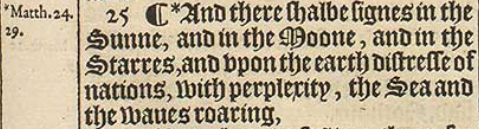 *Matth.24.
29.
25 ¶*And there ſhalbe ſignes in the
Sunne, and in the Moone, and in the
Starres,and vpon the earth diſtreſſe of
nations, with perplexity, the Sea and
the waues roaring,